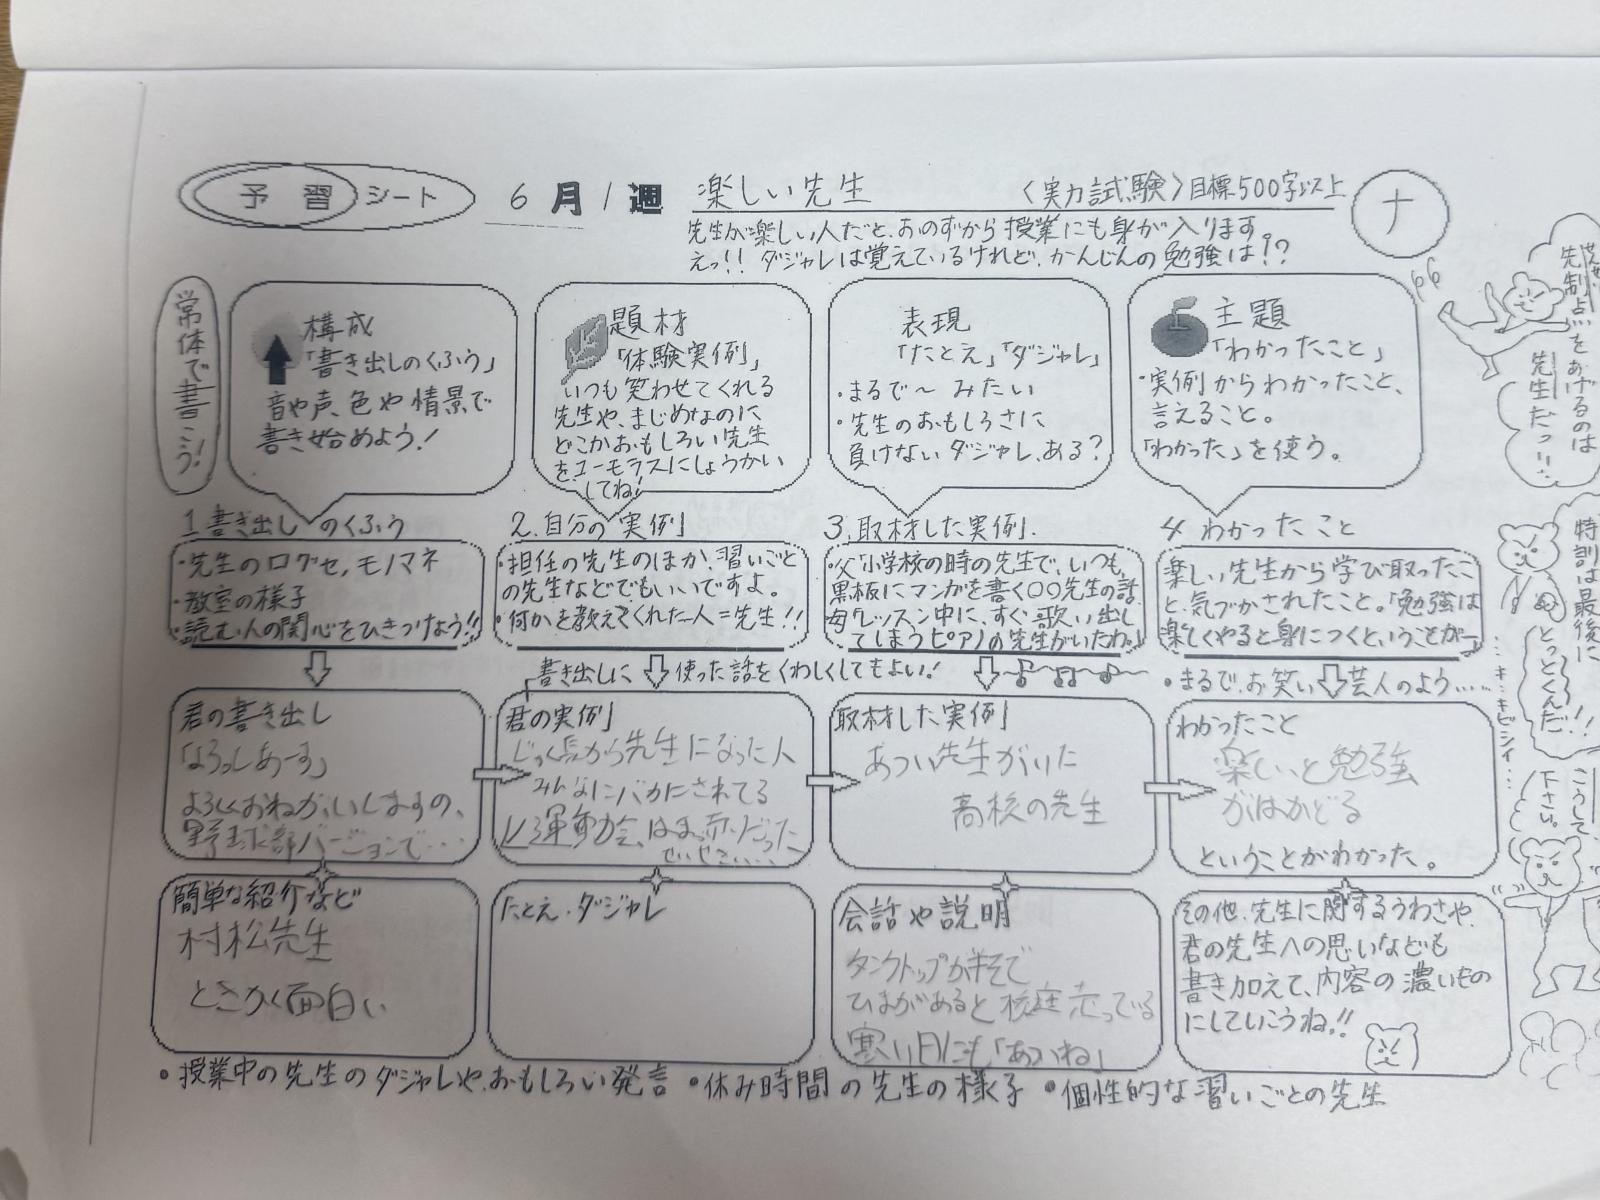 予習シート 6月1週 楽しい先生 〈実力試験〉目標500字以上 ナ
先生が楽しい人だと、おのずから授業にも身が入ります。
えっ!! ダジャレは覚えているけれど、かんじんの勉強は!?
常体で書こう!
構成
「書き出しのくふう」
音や声、色や情景で
書き始めよう!
題材
「体験実例」
いつも笑わせてくれる
先生や、まじめなのに
どこかおもしろい先生
をユーモラスにしょうかい
してね!
表現
「たとえ」「ダジャレ」
・まるで〜みたい
・先生のおもしろさに
負けないダジャレ、ある?
主題
「わかったこと」
・実例からわかったこと、
言えること。
「わかった」を使う。
先制点をあげるのは
先生だっ!!
1 書き出しのくふう
・先生の口グセ、モノマネ
・教室の様子
・読む人の関心をひきつけよう!!
2. 自分の「実例」
・担任の先生のほか、習いごと
の先生などでもいいですよ。
・何かを教えてくれた人=先生!!
3. 取材した実例.
・父「小学校の時の先生で、いつも、
黒板にマンガを書く〇〇先生の話
母「レッスン中に、すぐ歌い出し
てしまうピアノの先生がいたわ。」
4 わかったこと
楽しい先生から学び取ったこ
と、気づかされたこと。「勉強は
楽しくやると身につくということが〜」
特訓は最後に
とっとくんだ!!
書き出しに使った話をくわしくしてもよい!
・まるで、お笑い芸人のよう.....
君の書き出し
「よろっしあーす」
よろしくおねがいしますの、
野球部バージョンで…
君の実例
みんなにバカにされてる
取材した実例
あつい先生がいた
高校の先生
わかったこと
楽しいと勉強
がはかどる
ということがわかった。
こうして、
下さい。
簡単な紹介など
村松先生
とにかく面白い
たとえ・ダジャレ
会話や説明
タンクトップが半そで
ひまがあると校庭走っている
寒い日にも「あついね」
その他、先生に関するうわさや、
君の先生への思いなども
書き加えて、内容の濃いもの
にしていこうね!!
・授業中の先生のダジャレや、おもしろい発言 ・休み時間の先生の様子 ・個性的な習いごとの先生